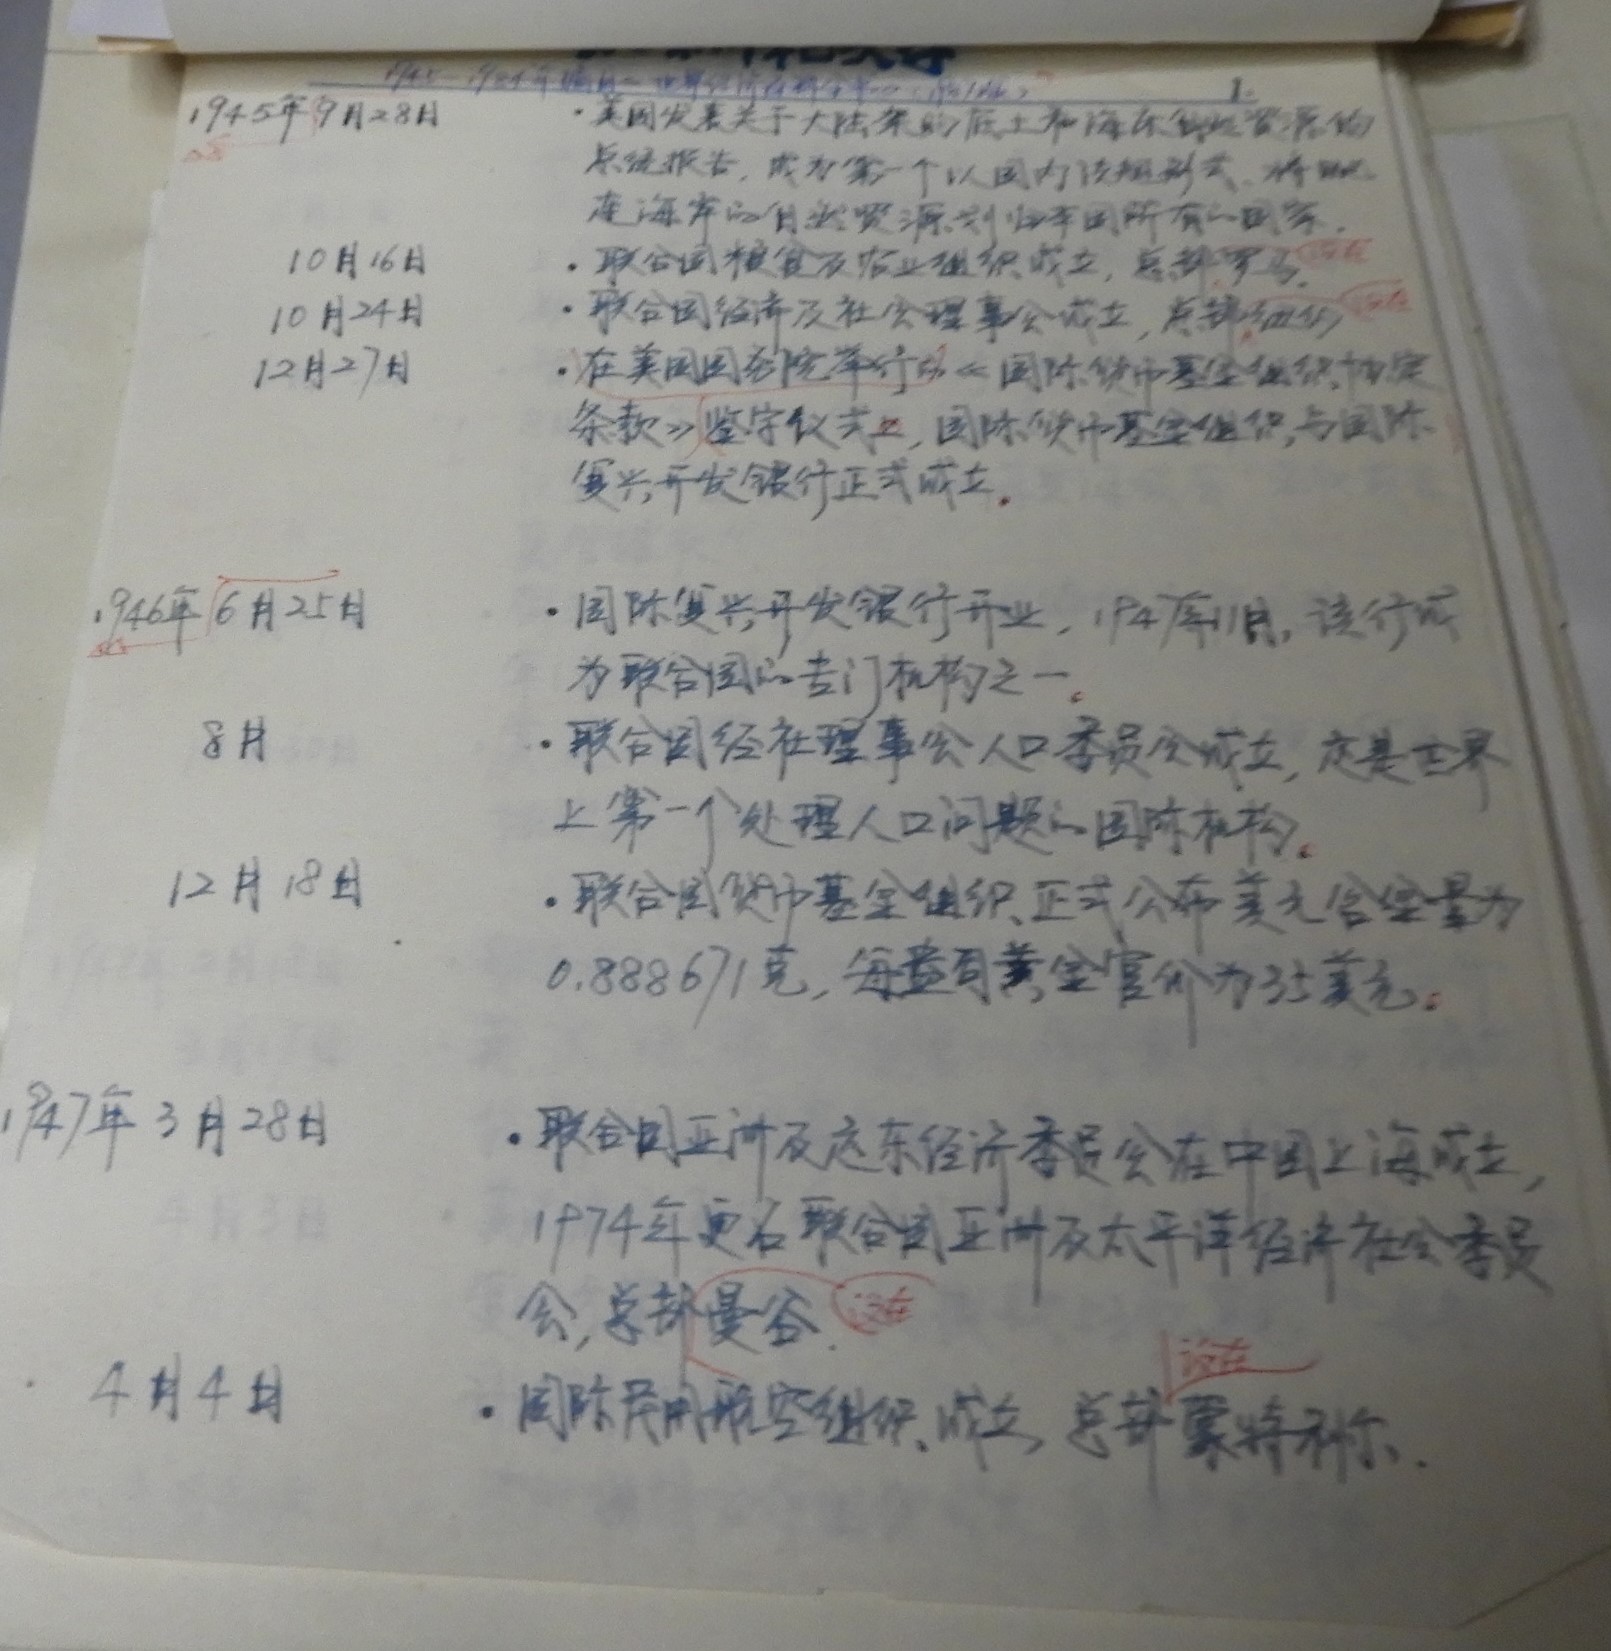 1.
1945年9月28日 ·美国发表关于大陆架的底土和海床自然资源的
总统报告,成为第一个以国内法规形式、将
海岸的自然资源划归本国所有的国家.
10月16日 ·联合国粮食及农业组织成立,总部罗马. 设在
10月24日 ·联合国经济及社会理事会成立,总部纽约 设在
12月27日 ·在美国国务院举行的《国际货币基金组织协定
条款》签字仪式上,国际货币基金组织与国际
复兴开发银行正式成立。
1946年6月25日 ·国际复兴开发银行开业,1947年11月,该行成
为联合国的专门机构之一。
8月 ·联合国经社理事会人口委员会成立,这是世界
上第一个处理人口问题的国际机构。
12月18日 ·联合国货币基金组织正式公布美元含金量为
0.888671克,每盎司黄金官价为35美元。
1947年3月28日 ·联合国亚洲及远东经济委员会在中国上海成立,
1974年更名联合国亚洲及太平洋经济社会委员
会,总部曼谷. 设在
设在
4月4日 ·国际民用航空组织成立,总部蒙特利尔.